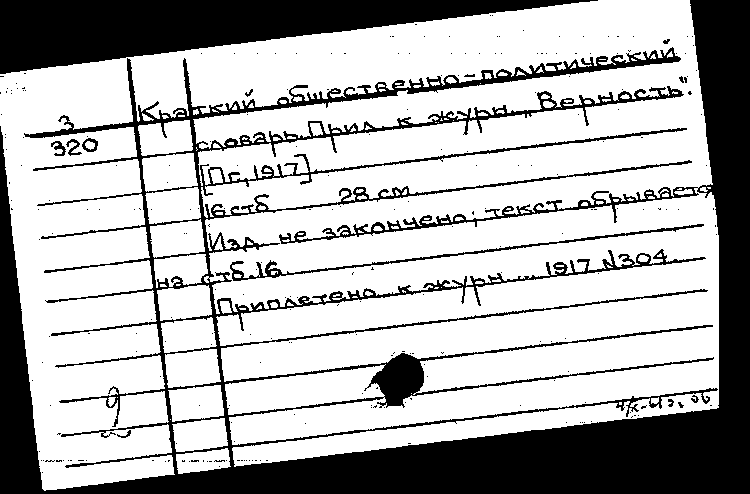 3
320
Краткий общественно-политический
словарь. Прил. к журн. „Верность".
[Пг, 1917]
16 стб 28 см
Изд. не закончено; текст обрывается
на стб. 16.
Приплетено к журн... 1917 N304.